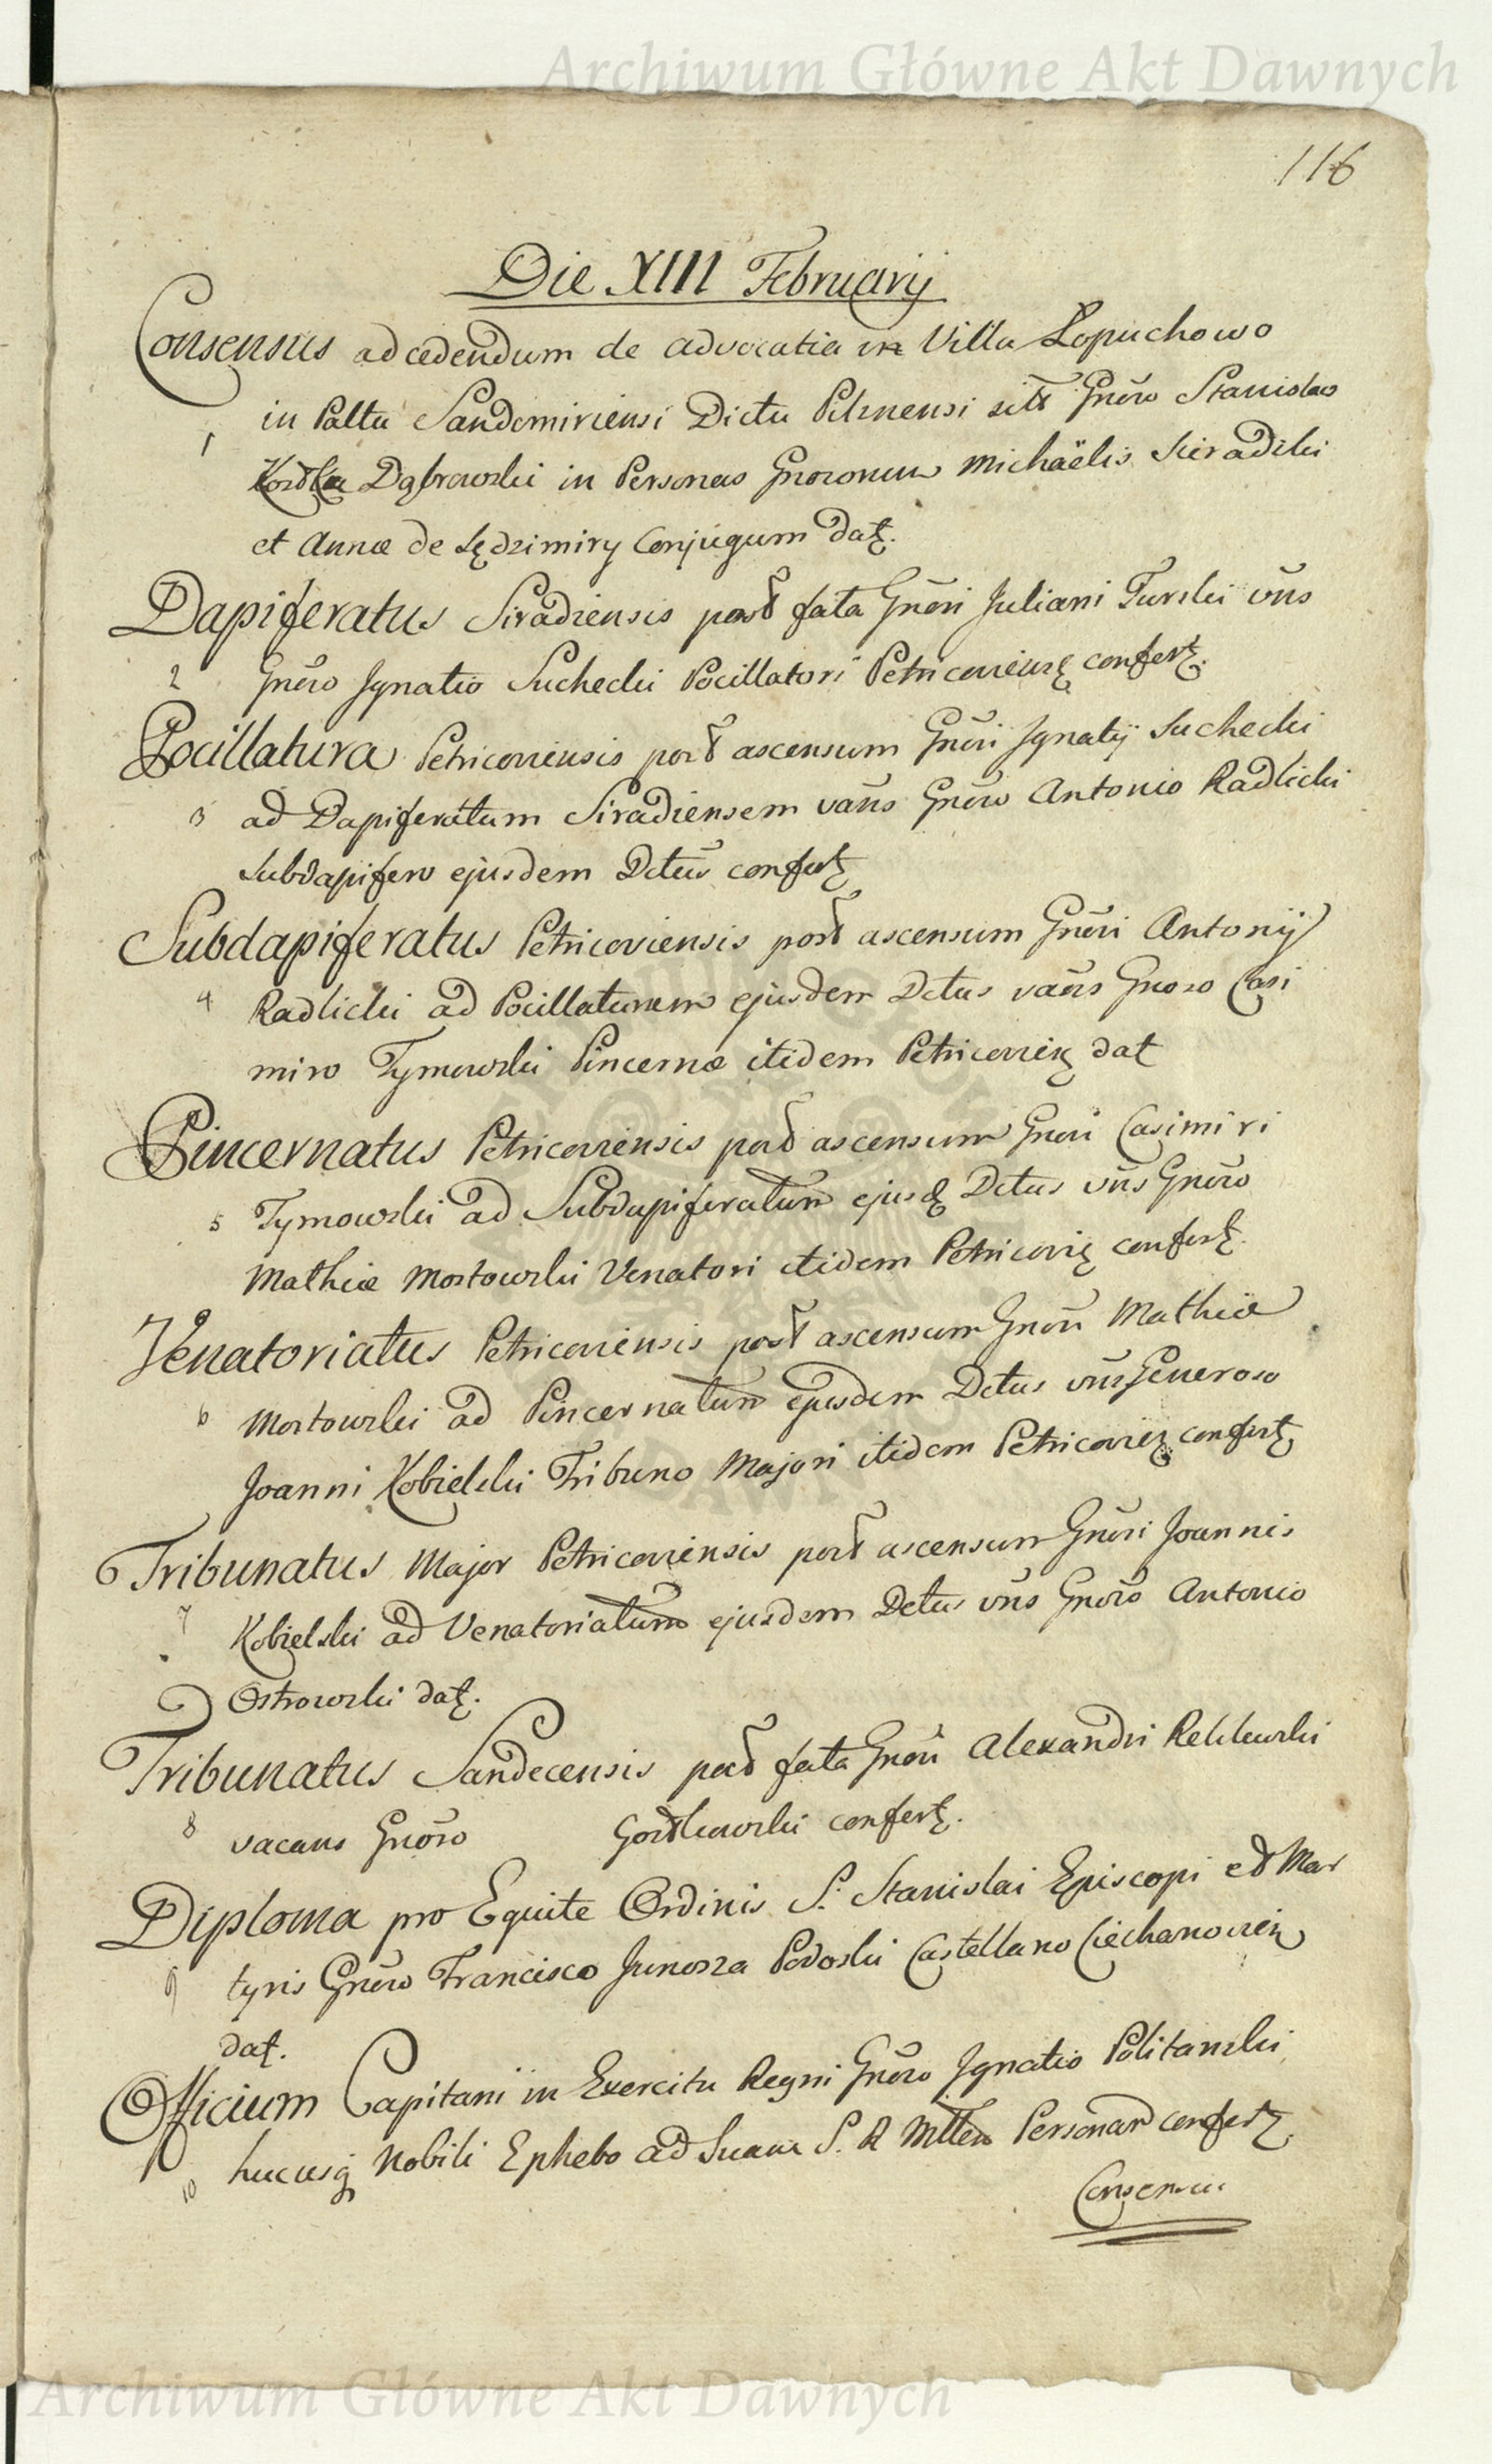 Archiwum Główne Akt Dawnych
116
Die XIII Februarij
Consensus ad cedendum de advocatia in Villa Łopuchowo
1 in Palttu Sandomiriensi Dictu Pilznensi sitt Gnẽro Stanislao
Kostka Dąbrowski in Personas Gnororum Michaëlis Sieradzki
et Annæ de Sędzimiry Conjugum datę.
Dapiferatus Siradiensis post fata Gnẽri Juliani Turski vñs
2 Gnẽro Ignatio Suchecki Pocillatori Petricovienę confertę.
Pocillatura Petricoviensis post ascensum Gnẽri Ignatij Suchecki
3 ad Dapiferatum Siradiensem vañs Gnẽro Antonio Radlicki
Subdapifero ejusdem Dctus confertę
Subdapiferatus Petricoviensis post ascensum Gnẽri Antonij
4 Radlicki ad Pocillaturam ejusdem Dctus vañs Gnoro Casi
miro Tymowski Pincernæ itidem Petricovieę dat
Pincernatus Petricoviensis post ascensum Gneri Casimiri
5 Tymowski ad Subdapiferatum ejusdę Dctus vñs Gnẽro
Mathiæ Mostowski Venatori itidem Petricovię confertę.
Venatoriatus Petricoviensis post ascensum Gnẽri Mathiæ
6 Mostowski ad Pincernatum ejusdem Dctus vñs Generoso
Joanni Kobielski Tribuno Majori itidem Petricovieę confertę
Tribunatus Major Petricoviensis post ascensum Gnẽri Joannis
7 Kobielski ad Venatoriatum ejusdem Dctus vñs Gnõro Antonio
Ostrowski datę.
Tribunatus Sandecensis post fata Gnẽri Alexandri Reklewski
8 vacans Gnõro Gostkowski confertę.
Diploma pro Equite Ordinis S. Stanislai Episcopi et Mar
9 tyris Gnẽro Francisco Junosza Podoski Castellano Ciechanovieę
datę.
Officium Capitani in Exercitu Regni Gnẽro Ignatio Politanski
10 hucusq Nobili Ephebo ad Suam S. R. Mttem Personam confertę
Consensus
Archiwum Główne Akt Dawnych